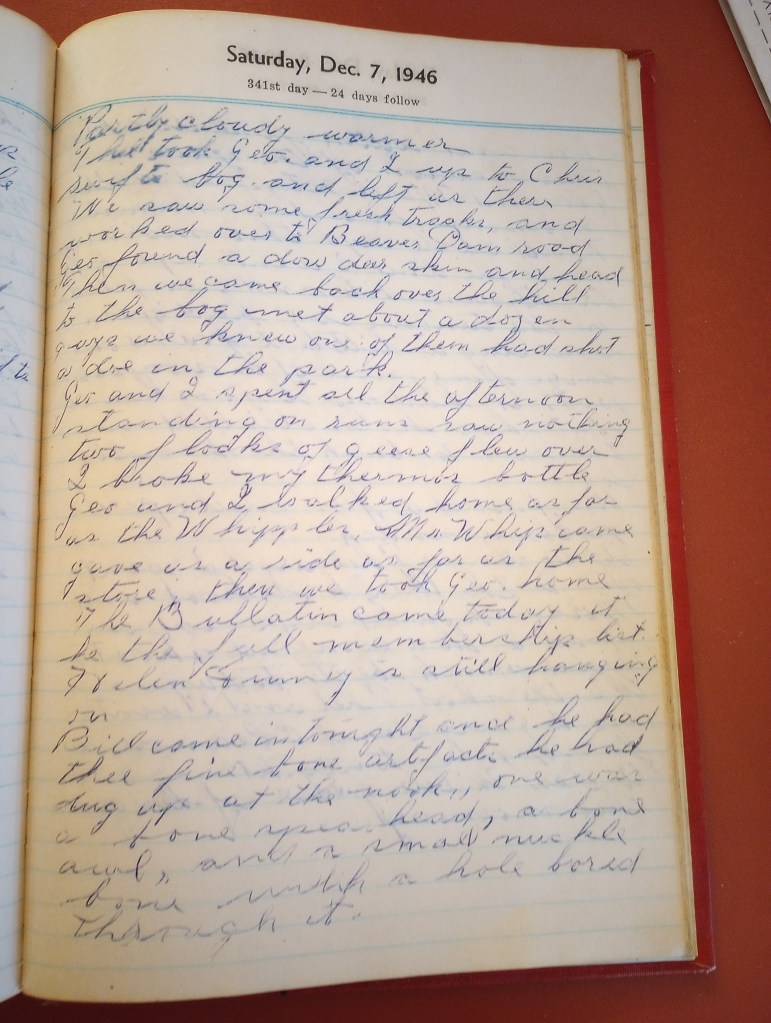 Saturday, Dec. 7, 1946
341st day — 24 days follow
Partly cloudy warmer
took Geo. and I up to Chris
bog. and left us there
We saw some fresh tracks, and
worked over to Beaver Dam road
Geo found a dow deer skin and head
Then we came back over the hill
to the bog met about a dozen
guys we knew one of them had shot
a doe in the park.
Geo and I spent all the afternoon
standing on runs saw nothing
two flocks of geese flew over
I broke my thermos bottle
Geo and I walked home as far
as the Whipples, Mr Whip came
gave us a ride as far as the
store, then we took Geo. home
The Bullatin came today it
be the full membership list.
Helen is still hanging
on
Bill came in tonight and he had
thee fine bone artifacts he had
dug up at the nook,, one was
a bone spea head, a bone
awl, and a small nuckle
bone with a hole bored
through it.